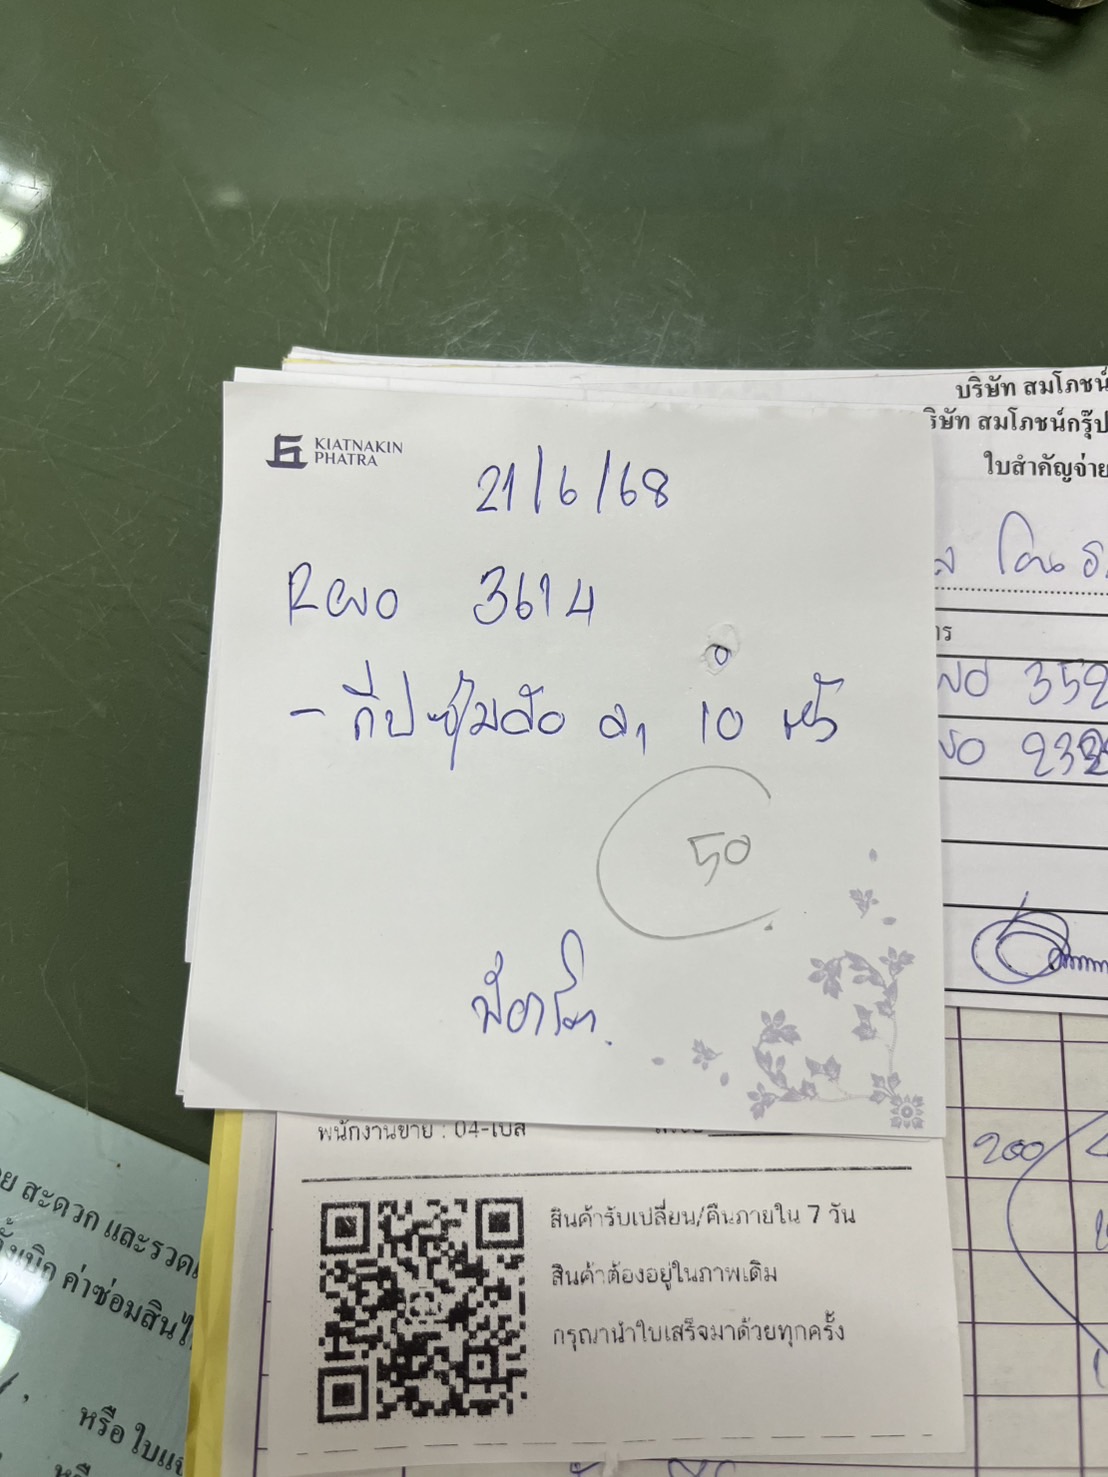 KIATNAKIN
PHATRA
21/6/68
Revo 3614
- กิ๊ปซุ้มล้อ ดำ 10 ตัว
50
บริษัท สมโภชน์
ริษัท สมโภชน์กรุ๊ป
ใบสำคัญจ่าย
โอน
าร
vo 352
vo 232
พนักงานขาย : 04-เบส
200
สินค้ารับเปลี่ยน/คืนภายใน 7 วัน
สินค้าต้องอยู่ในภาพเดิม
กรุณานำใบเสร็จมาด้วยทุกครั้ง
ย สะดวก และรวดเ
ค่าซ่อมสินไ
หรือ ใบแจ